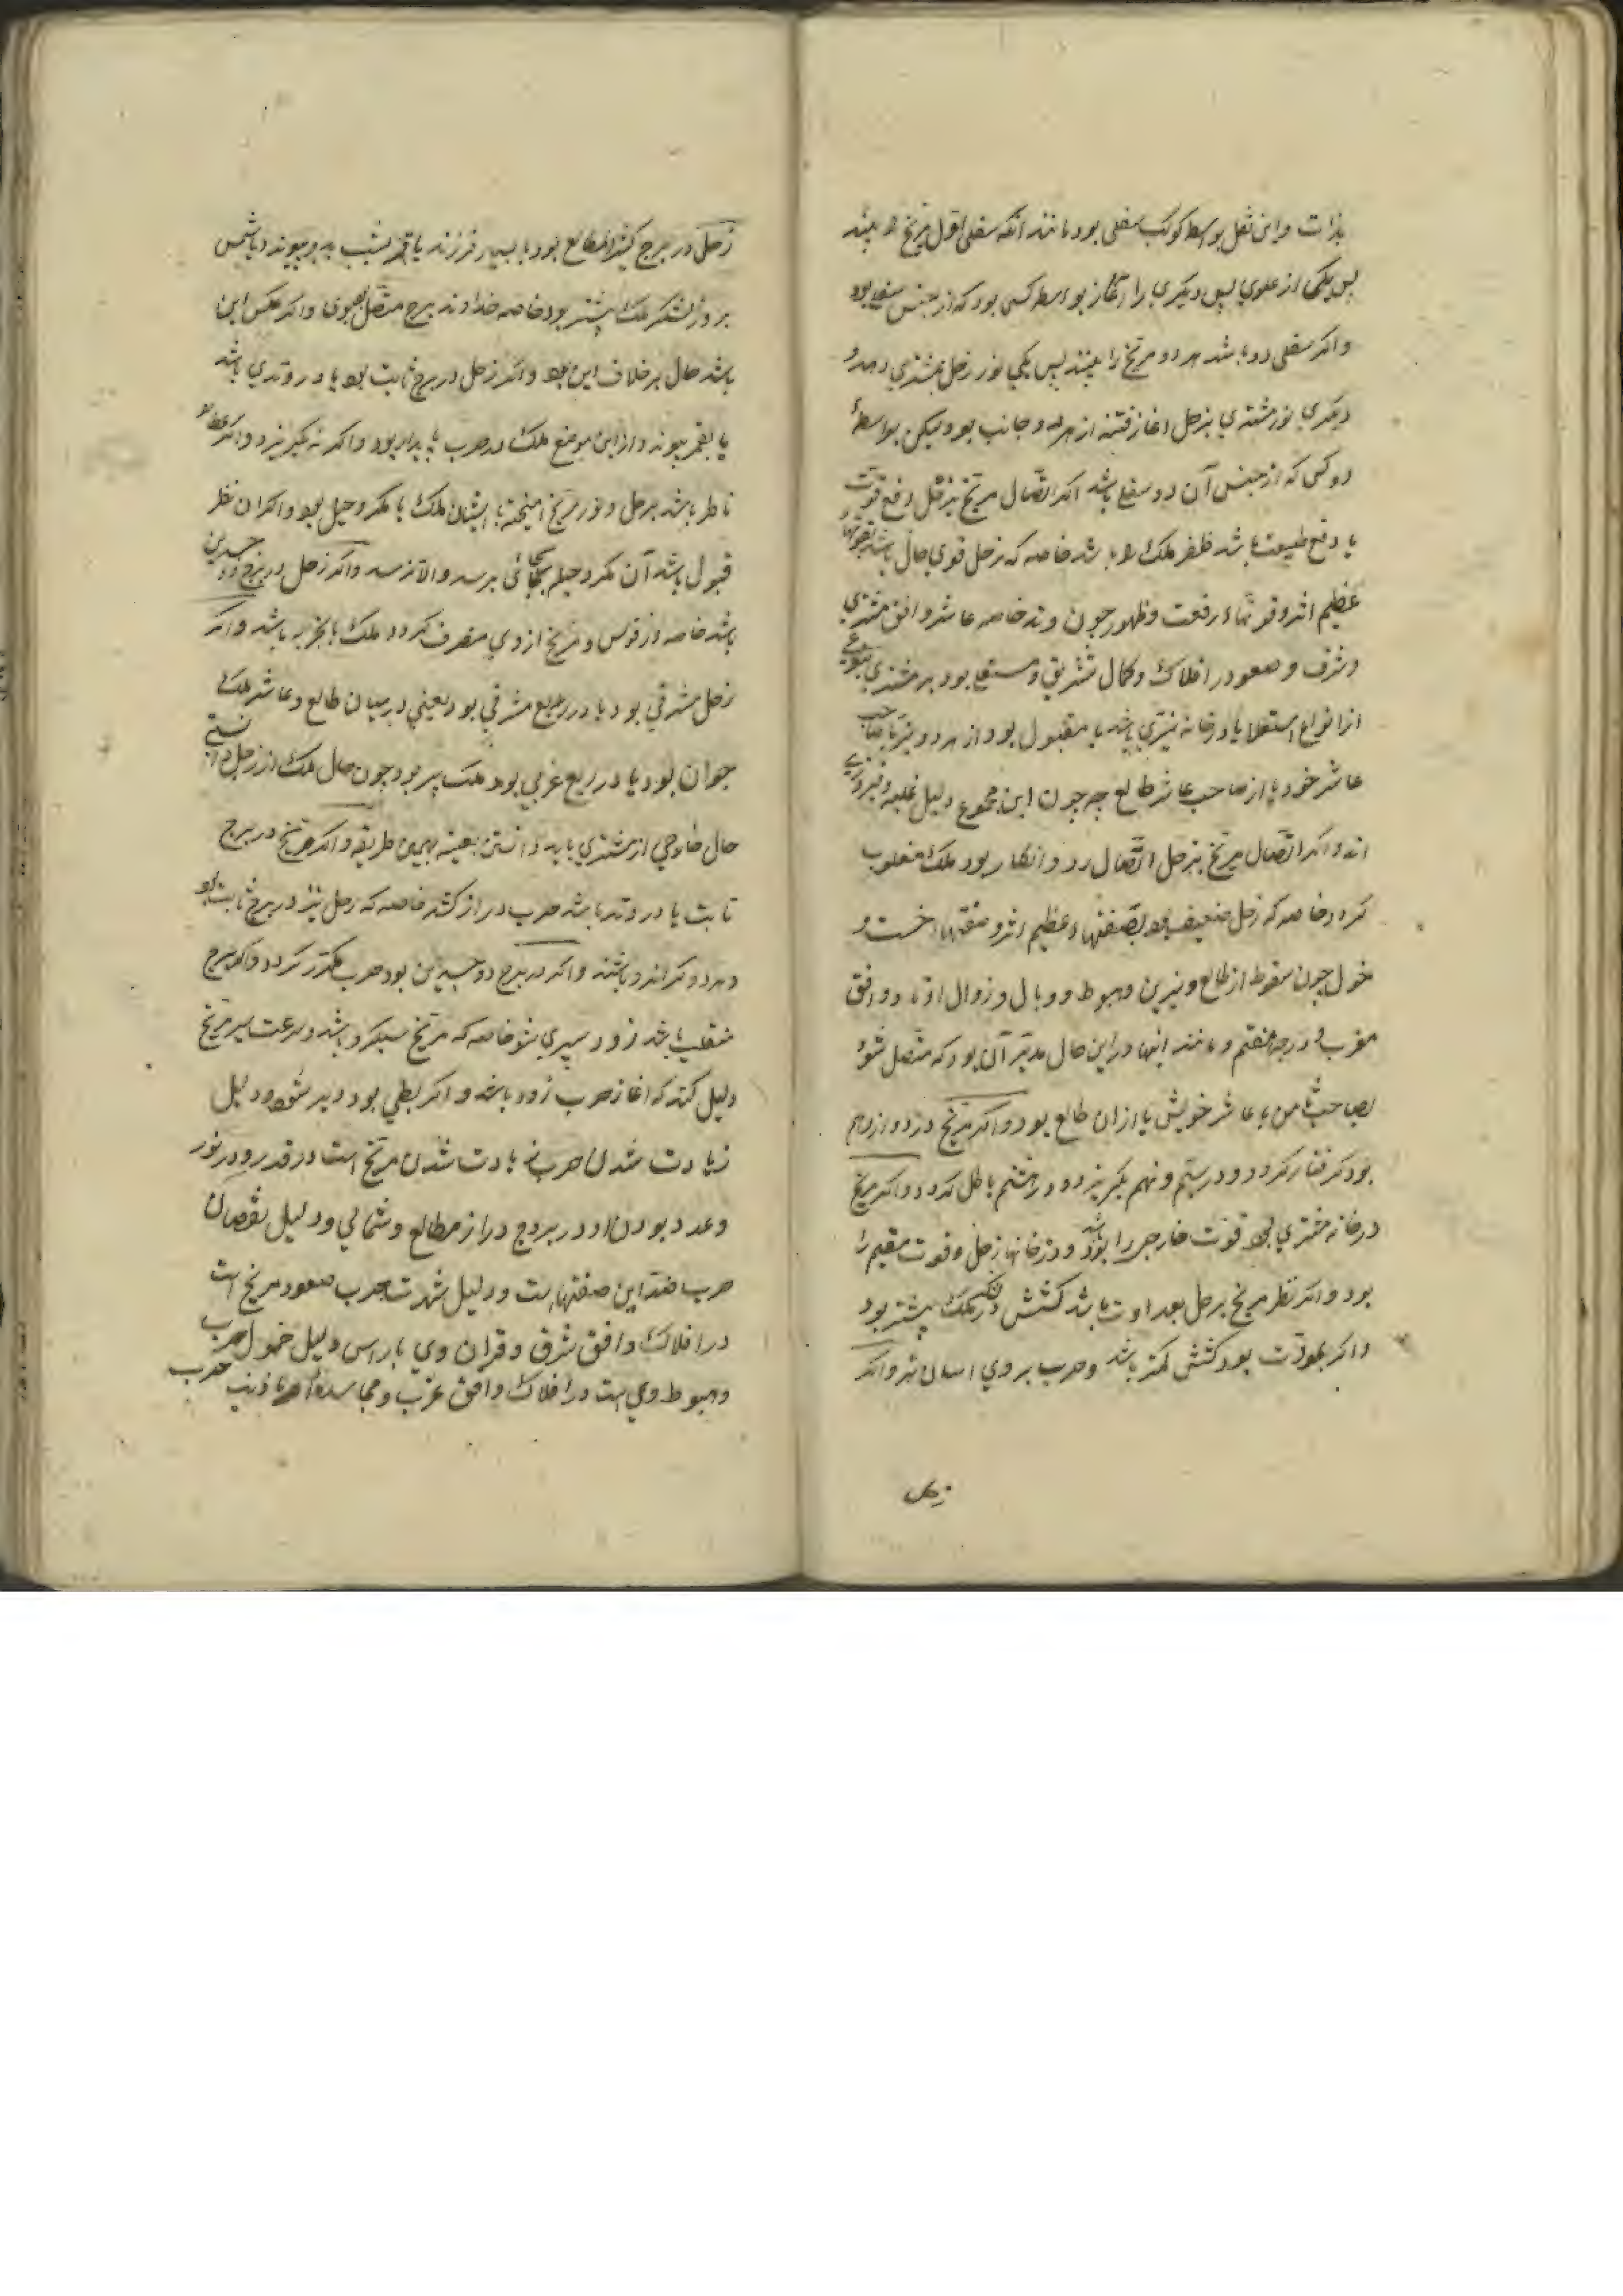 بذات واین نقل بواسطه کوکب سفلی بود مانند آنکه سفلی اول مریخ را بیند
پس یکی از علوی پس دیگری را آغاز بواسطه کسی بود که از جنس سفلی بود
واکر سفلی دو باشد هر دو مریخ را بینند پس یکی نور زحل بمشتری دهد و
دیکری نور مشتری بزحل اغاز فتنه از هر دو جانب بود ولیکن بواسطهٔ
دو کس که از جنس آن دو سفلی باشد اکر اتصال مریخ بزحل دفع قوت
یا دفع طبیعت باشد ظفر ملک را باشد خاصه که زحل قوی حال باشد بقوتها
عظیم اثر وقر نماء رفعت وظهور چون وتد خاصه عاشر وافق مشرقی
وشرف وصعود در افلاک وکمال تشریق و مستعلی بود بر مشتری بنوعی
از انواع استعلا یا در خانه نیری باشد یا مقبول بود از هر دو نیر یا صاحب
عاشر خود یا از صاحب عاشر طالع چه چون این مجموع دلیل غلبه وفیروزی
اند واکر اتصال مریخ بزحل اتصال رد وانکار بود ملک مغلوب
کردد خاصه که زحل ضعیف بود بضعفهاء عظیم اثر وصفتهاء خست و
خمول چون سقوط از طالع ونیرین وهبوط ووبال وزوال اوتاد وافق
مغرب ودرجه هفتم ومانند اینها در این حال مدبر آن بود که متصل شود
بصاحب ثامن یا عاشر خویش یا از ان طالع بود واکر مریخ در دوازدهم
بود کرفتار کردد ودر سیم ونهم بکریزد ودر هشتم باطل کردد واکر مریخ
در خانه مشتری بود قوت خارجی را بود ودر خانهاء زحل قوت مقیم را
بود واکر نظر مریخ بزحل بعداوت باشد کشش در لشکر ملک بیشتر بود
واکر بمودت بود کشش کمتر باشد وحرب بر وی اسان تر واکر
زحل
زحل در برج کثیر المطالع بود یا بسیار فرزند یا قمر بشب بدو پیوندد یا شمس
بروز لشکر ملک بیشتر بود خاصه خداوند برج متصل بعلوی واکر عکس این
باشد حال بر خلاف این بود واکر زحل در برج ثابت بود یا در وتدی باشد
یا بقمر پیوندد از این موضع ملک در حرب پایدار بود واکر نه بکریزد واکر عطارد
ناظر باشد بزحل ونور مریخ امیخته با ایشان ملک با مکر وحیل بود واکر ان نظر
قبول باشد آن مکر وحیلم بجائی برسد والا نرسد واکر زحل در برج ذو جسدین
باشد خاصه در قوس ومریخ از وی منصرف کردد ملک با تجربه باشد واکر
زحل مشرقی بود یا در ربع مشرقی بود یعنی در میان طالع وعاشر ملک
جوان بود یا در ربع غربی بود ملک پیر بود چون حال ملک از زحل دانستی
حال خارجی از مشتری باید دانستن بعینه بهمین طریقه واکر مریخ در برج
ثابت یا در وتد باشد حرب دراز کشد خاصه که زحل نیز در برج ثابت بود
وهر دو کرانرو باشند واکر در برج ذو جسدین بود حرب مکرر کردد واکر برج
منقلب باشد زود سپری شود خاصه که مریخ سبکرو باشد وسرعت سیر مریخ
دلیل کند که اغاز حرب زود باشد واکر بطی بود دیر شود ودلیل
زیادت شدن حرب زیادت شدن مریخ است در قدر ودر نور
وعدد بودن او در بروج دراز مطالع وشمالی ودلیل نقصان
حرب ضد این صفتهاست ودلیل شهرت حرب صعود مریخ است
در افلاک وافق شرق وقران وی با راس دلیل خمول حرب
وهبوط وی است در افلاک وافق غرب ومجاسده او با ذنب حرب